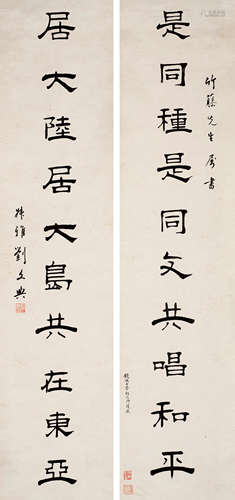 竹藤先生属書
是同種是同文共唱和平
居大陸居大島共在東亞
叔雅劉文典